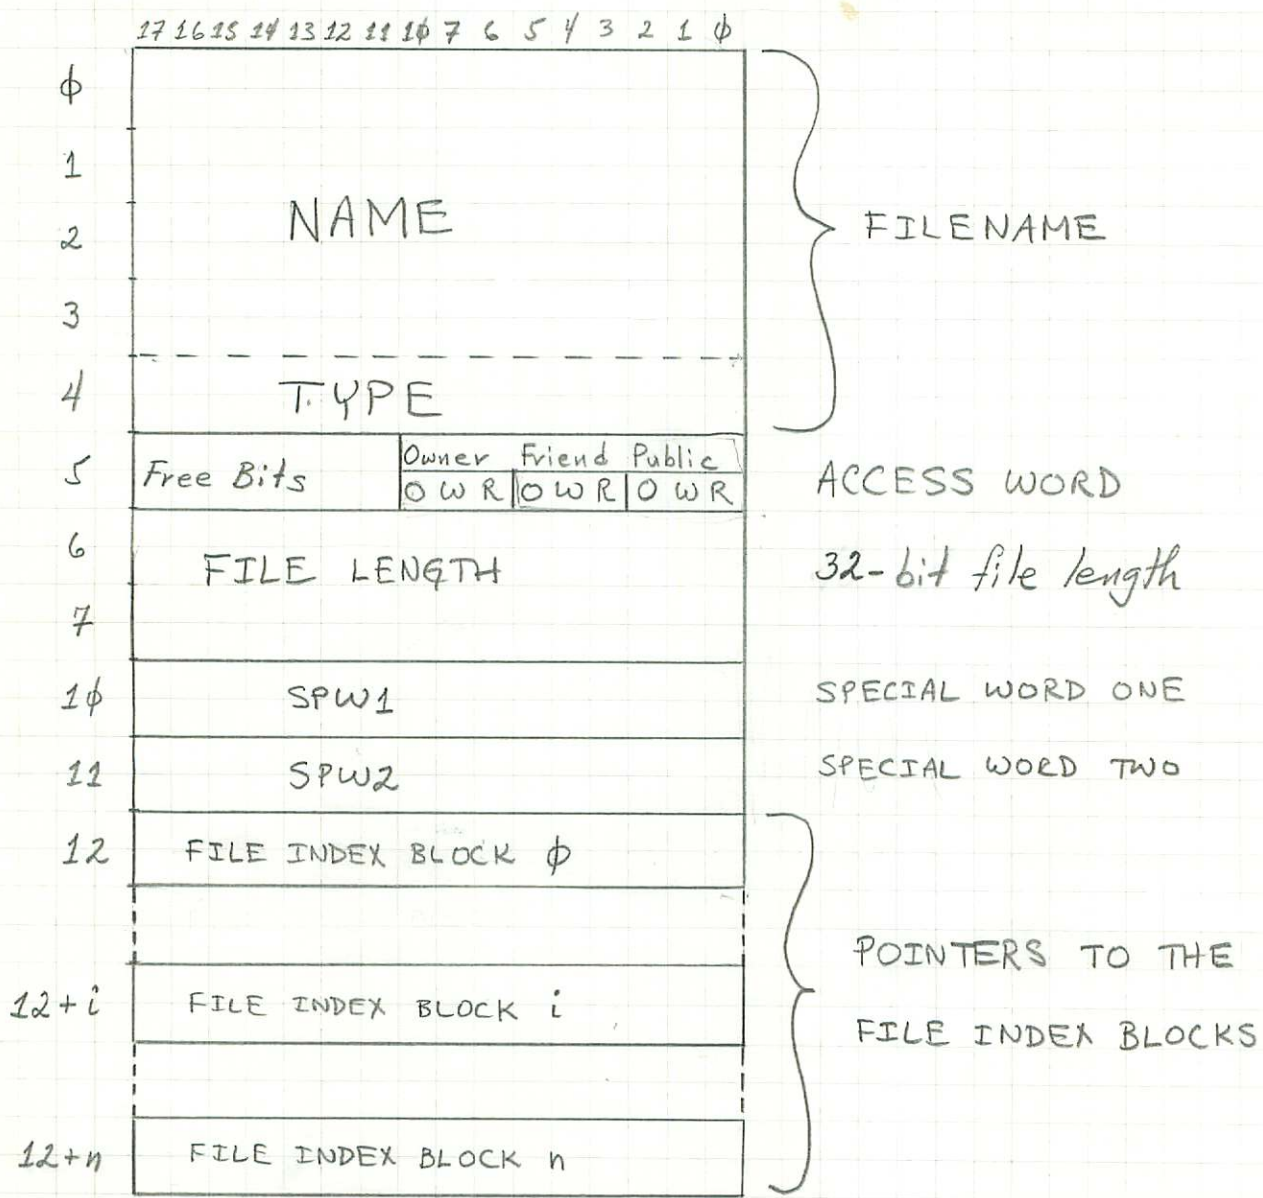 17 16 15 14 13 12 11 1ϕ 7 6 5 4 3 2 1 ϕ
ϕ
1
NAME
2
FILENAME
3
4
TYPE
5
Free Bits
Owner Friend Public
O W R O W R O W R
ACCESS WORD
6
FILE LENGTH
32-bit file length
7
1ϕ
SPW1
SPECIAL WORD ONE
11
SPW2
SPECIAL WORD TWO
12
FILE INDEX BLOCK ϕ
POINTERS TO THE
FILE INDEX BLOCKS
12+i
FILE INDEX BLOCK i
12+n
FILE INDEX BLOCK n